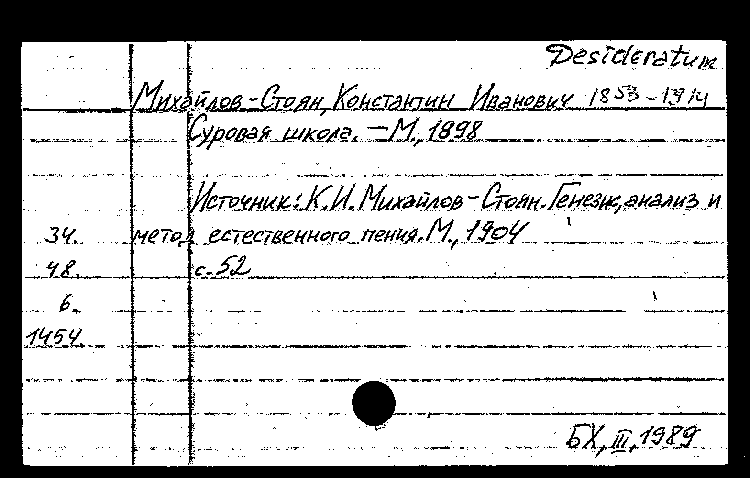 Desideratum
Михайлов-Стоян, Константин Иванович 1853-1914
Суровая школа. — М., 1898
Источник: К.И. Михайлов-Стоян. Генезис, анализ и
34. метод естественного пения. М., 1904
48. с. 52
6.
1454.
БХ, III, 1989